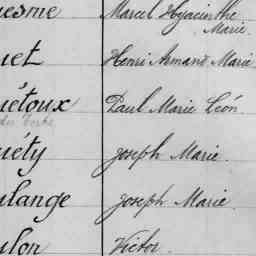 uesme Marcel Hyacinthe
Marie.
uet Henri Armand Marie
uétoux Paul Marie Léon
uéty Joseph Marie.
ulange Joseph Marie.
ulon Victor.